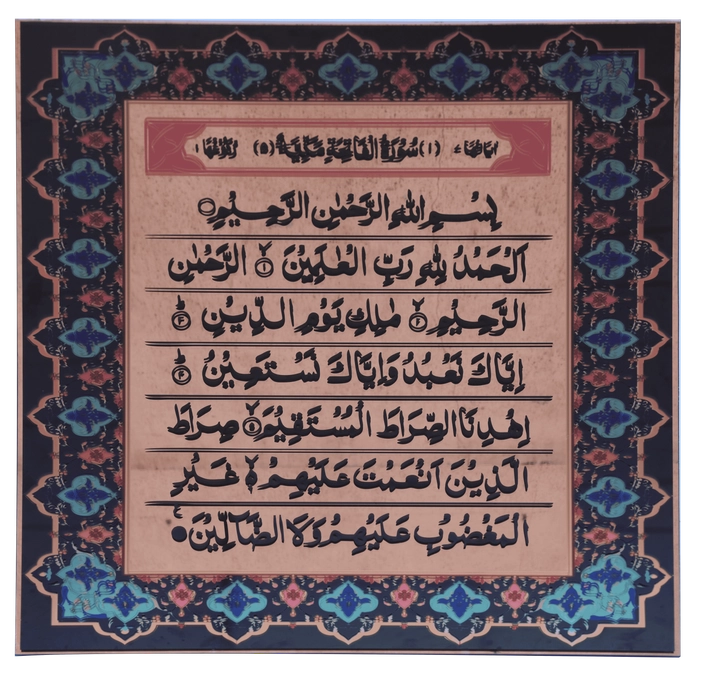 اٰيَاتُهَا ٧ (١) سُوْرَةُ الْفَاتِحَةِ مَكِّيَّةٌ (٥) رُكُوْعُهَا ١
بِسْمِ اللهِ الرَّحْمٰنِ الرَّحِيْمِ
اَلْحَمْدُ لِلّٰهِ رَبِّ الْعٰلَمِيْنَ ۙ﴿١﴾ الرَّحْمٰنِ
الرَّحِيْمِ ۙ﴿٢﴾ مٰلِكِ يَوْمِ الدِّيْنِ ؕ﴿٣﴾
اِيَّاكَ نَعْبُدُ وَاِيَّاكَ نَسْتَعِيْنُ ؕ﴿٤﴾
اِهْدِنَا الصِّرَاطَ الْمُسْتَقِيْمَ ۙ﴿٥﴾ صِرَاطَ
الَّذِيْنَ اَنْعَمْتَ عَلَيْهِمْ ۙ غَيْرِ
الْمَغْضُوْبِ عَلَيْهِمْ وَلَا الضَّآلِّيْنَ